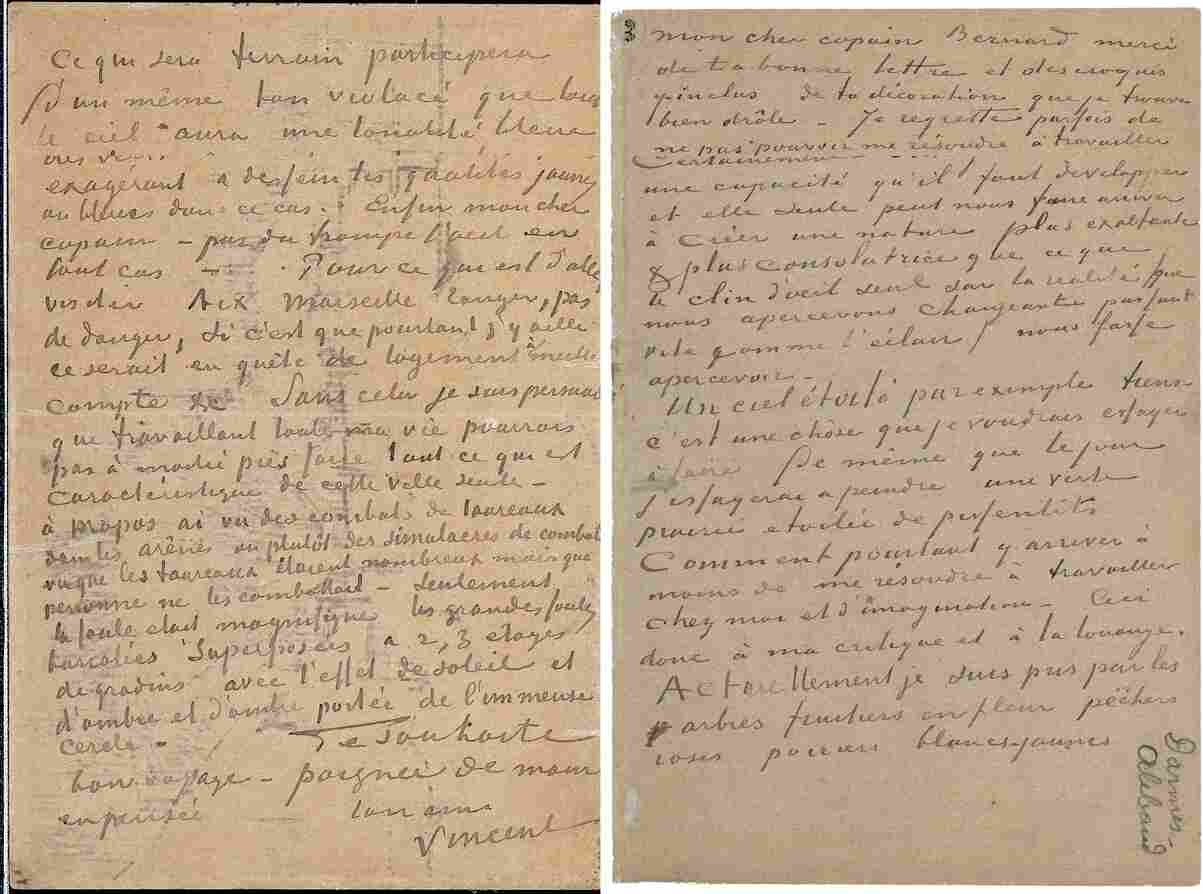 Ce qui sera terrain participera
D'un même ton violacé que tout
le ciel aura une tonalité bleue
exagérant à dessein les qualités jaunes
ou bleues dans ce cas. Enfin mon cher
copain – pas du trompe l'œil en
tout cas – . Pour ce qui est d'aller
visiter Aix Marseille Tanger, pas
de danger, si c'est que pourtant j'y aille
ce serait en quête de logement
compte &c Sans cela je suis persuadé
que travaillant toute ma vie pourrais
pas à moitié près faire tout ce qui est
caractéristique de cette ville seule –
à propos ai vu des combats de taureaux
dans les arènes ou plutôt des simulacres de combat
vu que les taureaux étaient nombreux mais que
personne ne les combattait – seulement
la foule était magnifique les grandes foules
bariolées superposées a 2, 3 étages
de gradins avec l'effet de soleil et
d'ombre et d'ombre portée de l'immense
cercle – Te souhaite
bon voyage – poignée de main
en pensée ton ami
Vincent
mon cher copain Bernard merci
de ta bonne lettre et des croquis
y inclus de ta décoration que je trouve
bien drôle – Je regrette parfois de
ne pas pouvoir me résoudre à travailler
Certainement
une capacité qu'il faut developper
et elle seule peut nous faire arriver
à créer une nature plus exaltante
& plus consolatrice que ce que
le clin d'oeil seul sur la réalité (que
nous apercevons changeante passant
vite comme l'éclair) nous fasse
apercevoir –
Un ciel étoilé par exemple tiens
c'est une chôse que je voudrais essayer
à faire De même que le jour
j'essayerai a peindre une verte
prairie etoilée de pissenlits
Comment pourtant y arriver à
moins de me résoudre à travailler
chez moi et d'imagination – Ceci
donc à ma critique et à ta louange.
Actuellement je suis pris par les
arbres fruitiers en fleur pêchers
roses poiriers blancs-jaunes